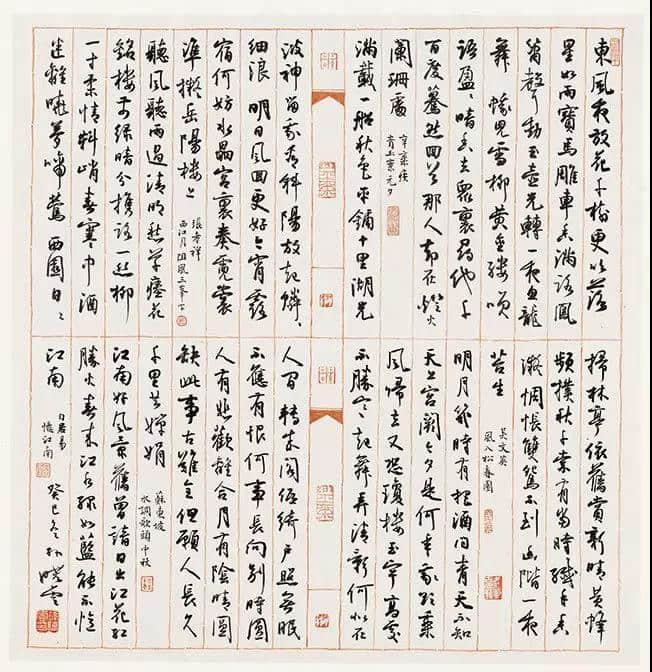 東風夜放花千樹更吹落
星如雨寶馬雕車香滿路鳳
簫聲動玉壺光轉一夜魚龍
舞 蛾兒雪柳黃金縷笑
語盈々暗香去眾裏尋他千
百度驀然回首那人卻在燈火
闌珊處
辛棄疾
青玉案元夕
滿載一船秋色平鋪十里湖光
波神留我看斜陽放起鱗々
細浪 明日風回更好今宵露
宿何妨水晶宮裏奏霓裳
準擬岳陽樓上
張孝祥
西江月阻風三峯下
聽風聽雨過清明愁草瘞花
銘樓前綠暗分攜路一絲柳
一寸柔情料峭春寒中酒
迷離曉夢啼鶯 西園日々
掃林亭依舊賞新晴黃蜂
頻撲秋千索有當時纖手香
凝惆悵雙鴛不到幽階一夜
苔生
吳文英
風入松春園
明月幾時有把酒問青天不知
天上宮闕今夕是何年我欲乘
風歸去又恐瓊樓玉宇高處
不勝寒起舞弄清影何似在
人間 轉朱閣低綺戶照無眠
不應有恨何事長向別時圓
人有悲歡離合月有陰晴圓
缺此事古難全但願人長久
千里共嬋娟
蘇東坡
水調歌頭中秋
江南好風景舊曾諳日出江花紅
勝火春來江水綠如藍能不憶
江南
白居易
憶江南
癸巳冬孫曉雲